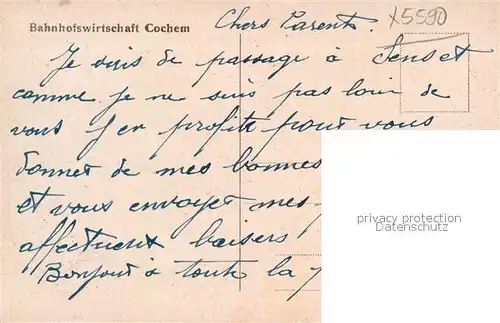 Bahnhofswirtschaft Cochem
Chers Parents.
X5590
Je suis de passage à
comme je ne suis pas loin de
vous j'en profite pour vous
donner de mes bonnes
et vous envoyer mes
affectueux baisers
Bonjour à toute la
privacy protection
VEREINDIENST